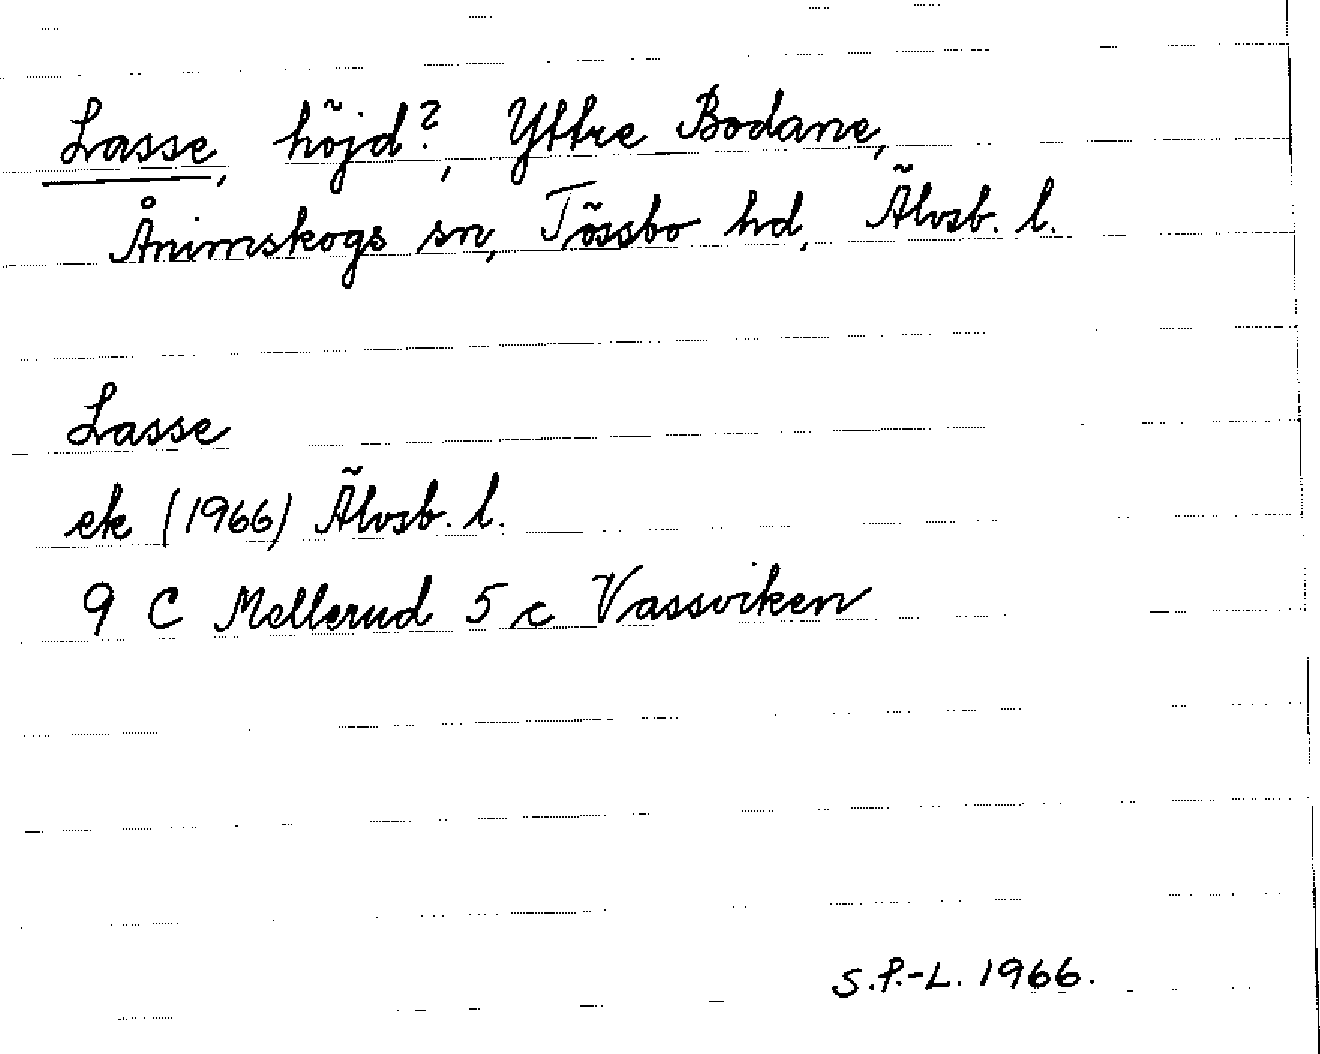 Lasse, höjd?, Yttre Bodane,
Ånimskogs sn, Tössbo hd, Älvsb. l.
Lasse
ek (1966) Älvsb. l.
9 C Mellerud 5 c Vassviken
S.P.-L. 1966.